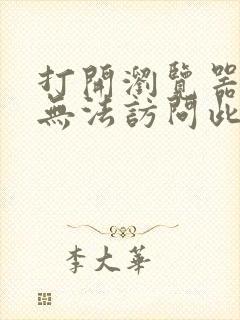 打開瀏覽器
無法訪問此
李大華